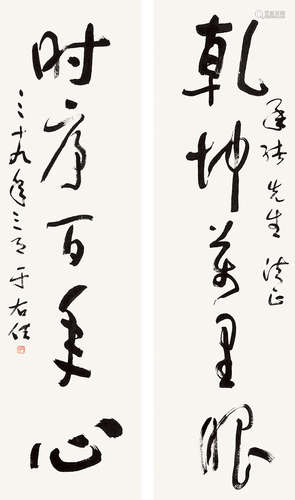 乾坤萬里眼
先生 法正
时序百年心
三十九年三月 于右任